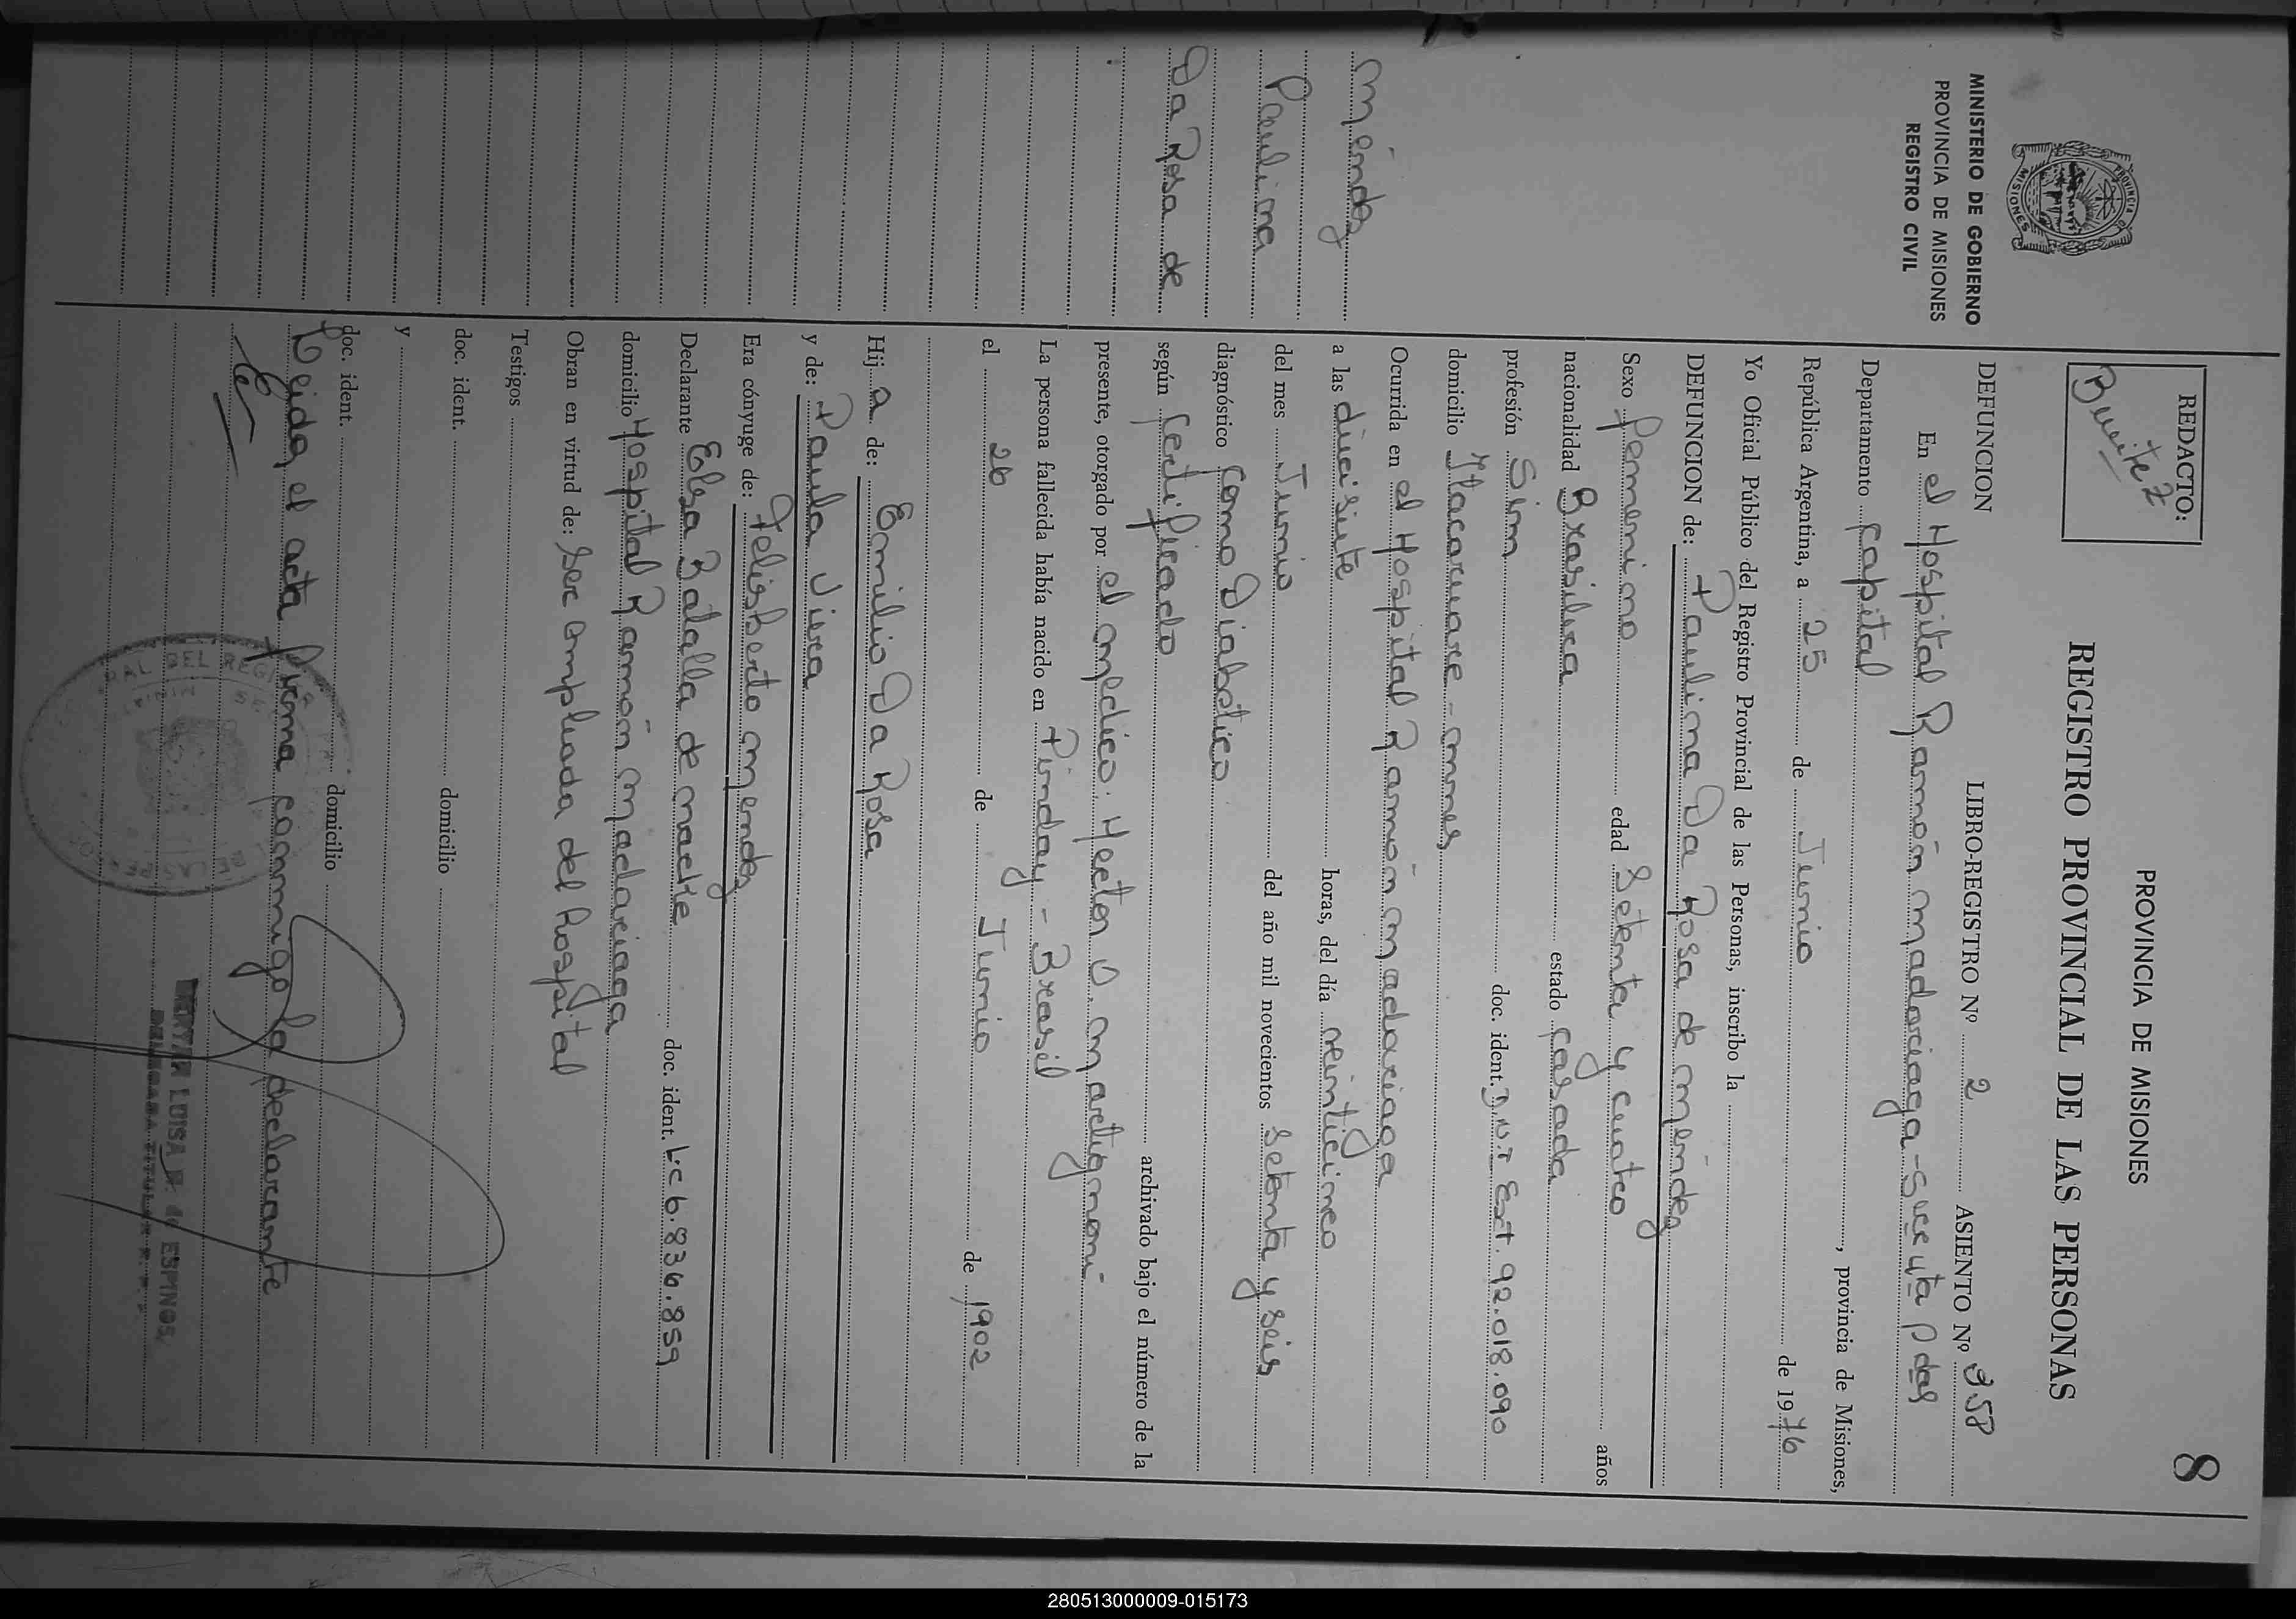 8
PROVINCIA DE MISIONES
REGISTRO PROVINCIAL DE LAS PERSONAS
REDACTO:
Benitez
PROVINCIA
MISIONES
MINISTERIO DE GOBIERNO
PROVINCIA DE MISIONES
REGISTRO CIVIL
Méndez
Paulina
Da Rosa de
DEFUNCION LIBRO-REGISTRO Nº 2 ASIENTO Nº 358
En el Hospital Ramón Madariaga - Sec uta Pdas
Departamento Capital, provincia de Misiones,
República Argentina, a 25 de Junio de 1976
Yo Oficial Público del Registro Provincial de las Personas, inscribo la
DEFUNCION de: Paulina Da Rosa de Méndez
Sexo Femenino edad Setenta y cuatro años
nacionalidad Brasilera estado casada
profesión Sin doc. ident. D.N.I Ext. 92.018.090
domicilio Itacaruare - mnes
Ocurrida en el Hospital Ramón Madariaga
a las diecisiete horas, del día veinticinco
del mes Junio del año mil novecientos Setenta y seis
diagnóstico Coma Diabetico
según Certificado archivado bajo el número de la
presente, otorgado por el medico: Hector V. Martignoni
La persona fallecida había nacido en Pinday - Brasil
el 26 de Junio de 1902
Hija de: Emilio Da Rosa
y de: Paula Viera
Era cónyuge de: Felisberto Mendez
Declarante Elsa Batalla de doc. ident. L.C 6.836.859
domicilio Hospital Ramón Madariaga
Obran en virtud de: Ser empleada del Hospital
Testigos
doc. ident. domicilio
y
doc. ident. domicilio
Leida el acta firma conmigo la declarante
LUISA ESPINOSA
TITULAR
280513000009-015173